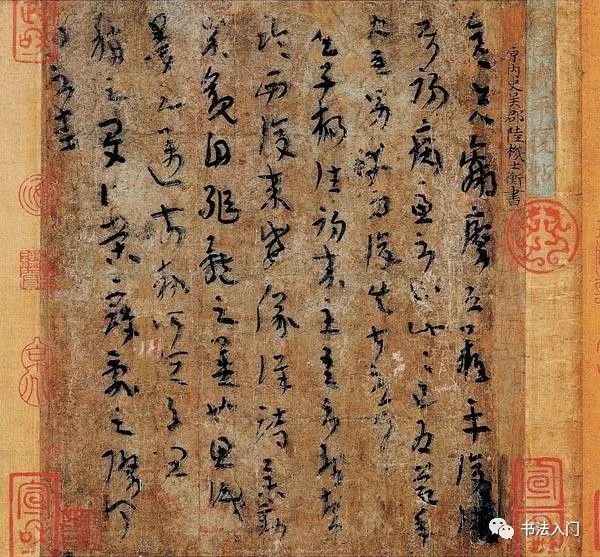 原内史吳郡陸機士衡書
彦先羸瘵恐難平復往屬
初病慮不止此此已為慶承
使唯男幸為復失前憂耳
吳子楊往初來主吾不能盡
臨西復來威儀詳跱舉動
成觀自軀體之美也思識
量之邁前執所恒有宜
稱之夏伯榮寇亂之際聞
問不悉
书法入门